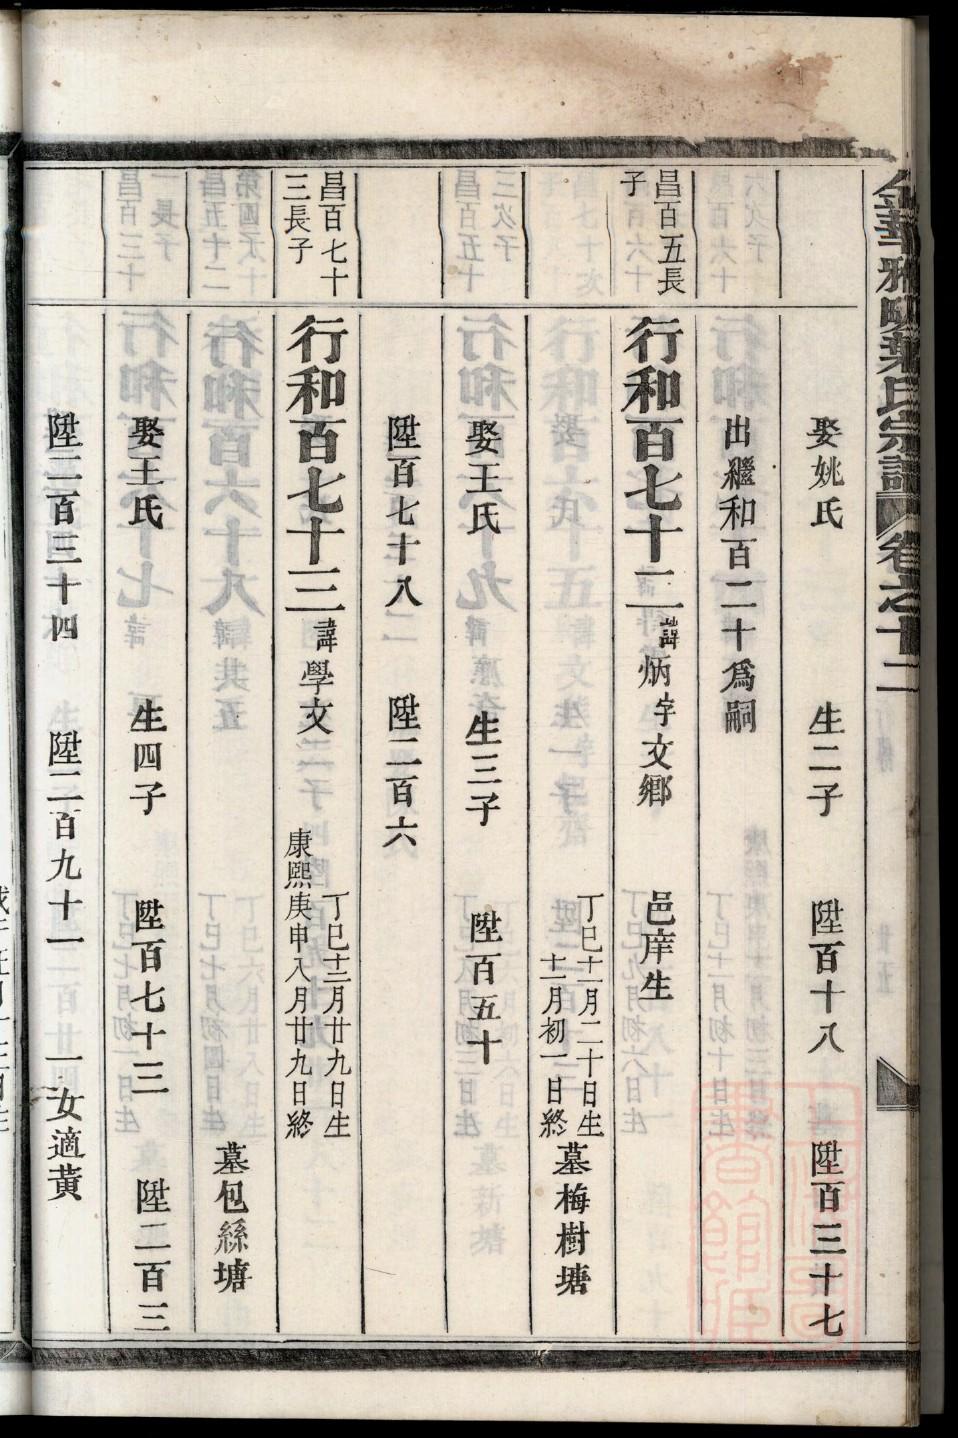 金華雅畈葉氏宗譜 卷之十二
娶姚氏 生二子 陞百十八 陞百三十七
出繼和百二十爲嗣
昌百五長子
行和百七十二 諱炳字文鄉 邑庠生
丁巳十一月二十日生
十一月初一日終
墓梅樹塘
娶王氏 生三子 陞百五十
陞百七十八 陞二百六
昌百七十三長子
行和百七十三 諱學文
丁巳十二月廿九日生
康熙庚申八月廿九日終
墓包絲塘
娶王氏 生四子 陞百七十三 陞二百三
陞二百三十四 陞二百九十一 一女適黃